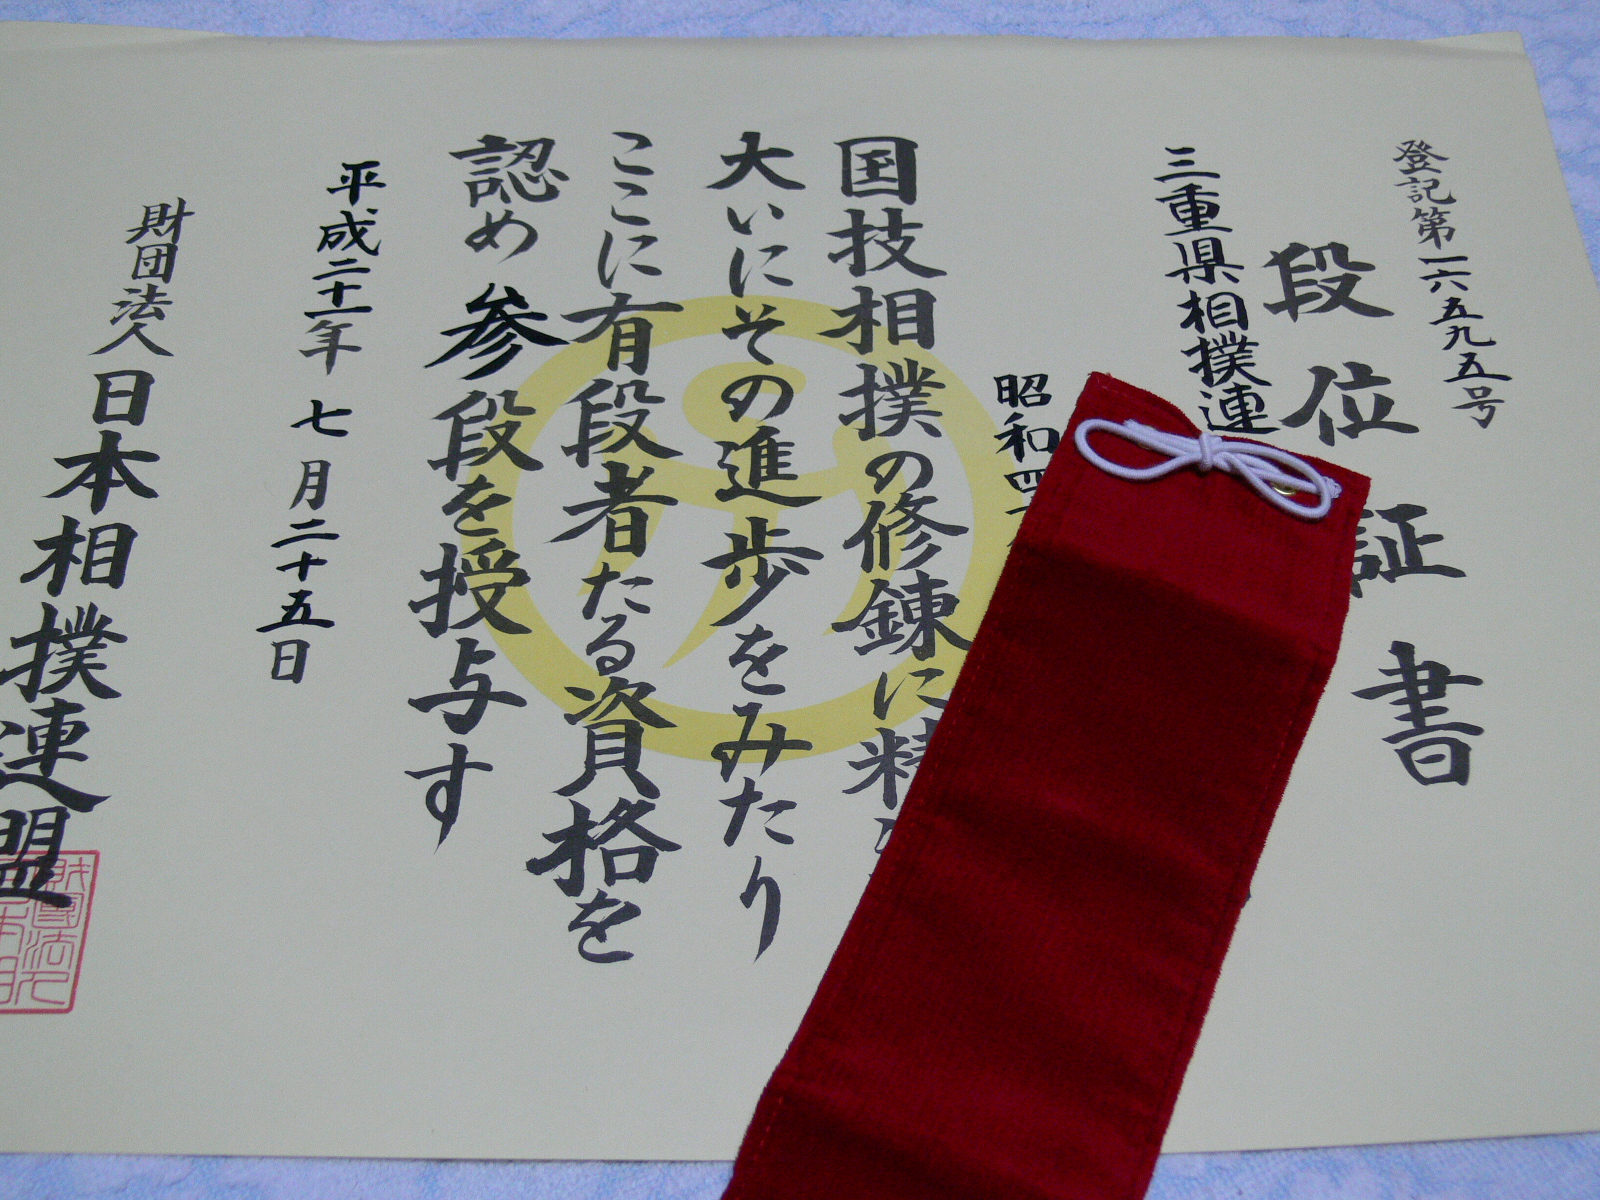 登記第一六五九五号
段位証書
三重県相撲連
昭和四
国技相撲の修錬に精
大いにその進歩をみたり
ここに有段者たる資格を
認め参段を授与す
平成二十一年七月二十五日
財団法人日本相撲連盟